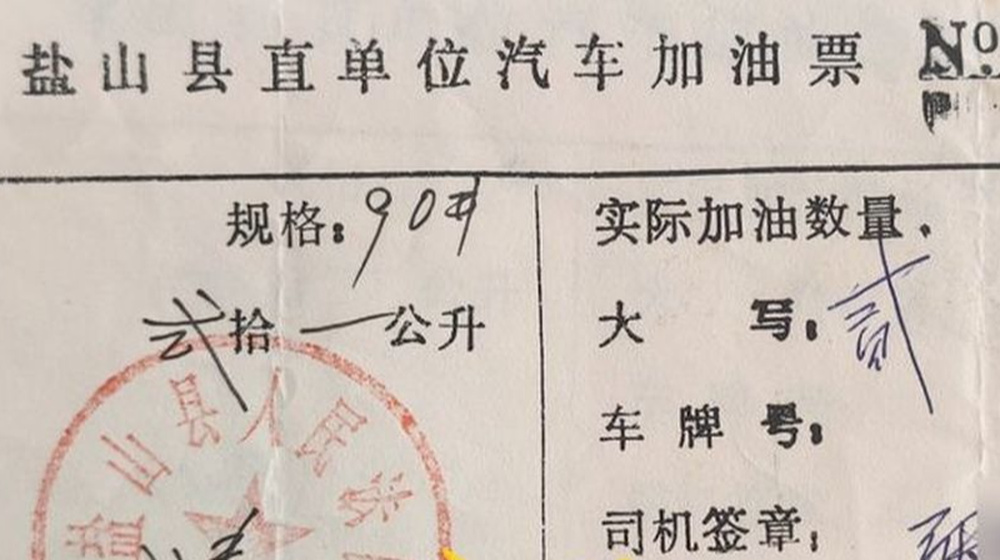 盐山县直单位汽车加油票 №
规格:90#
贰拾一公升
实际加油数量.
大写:贰
车牌号:
司机签章:
盐山县人民法